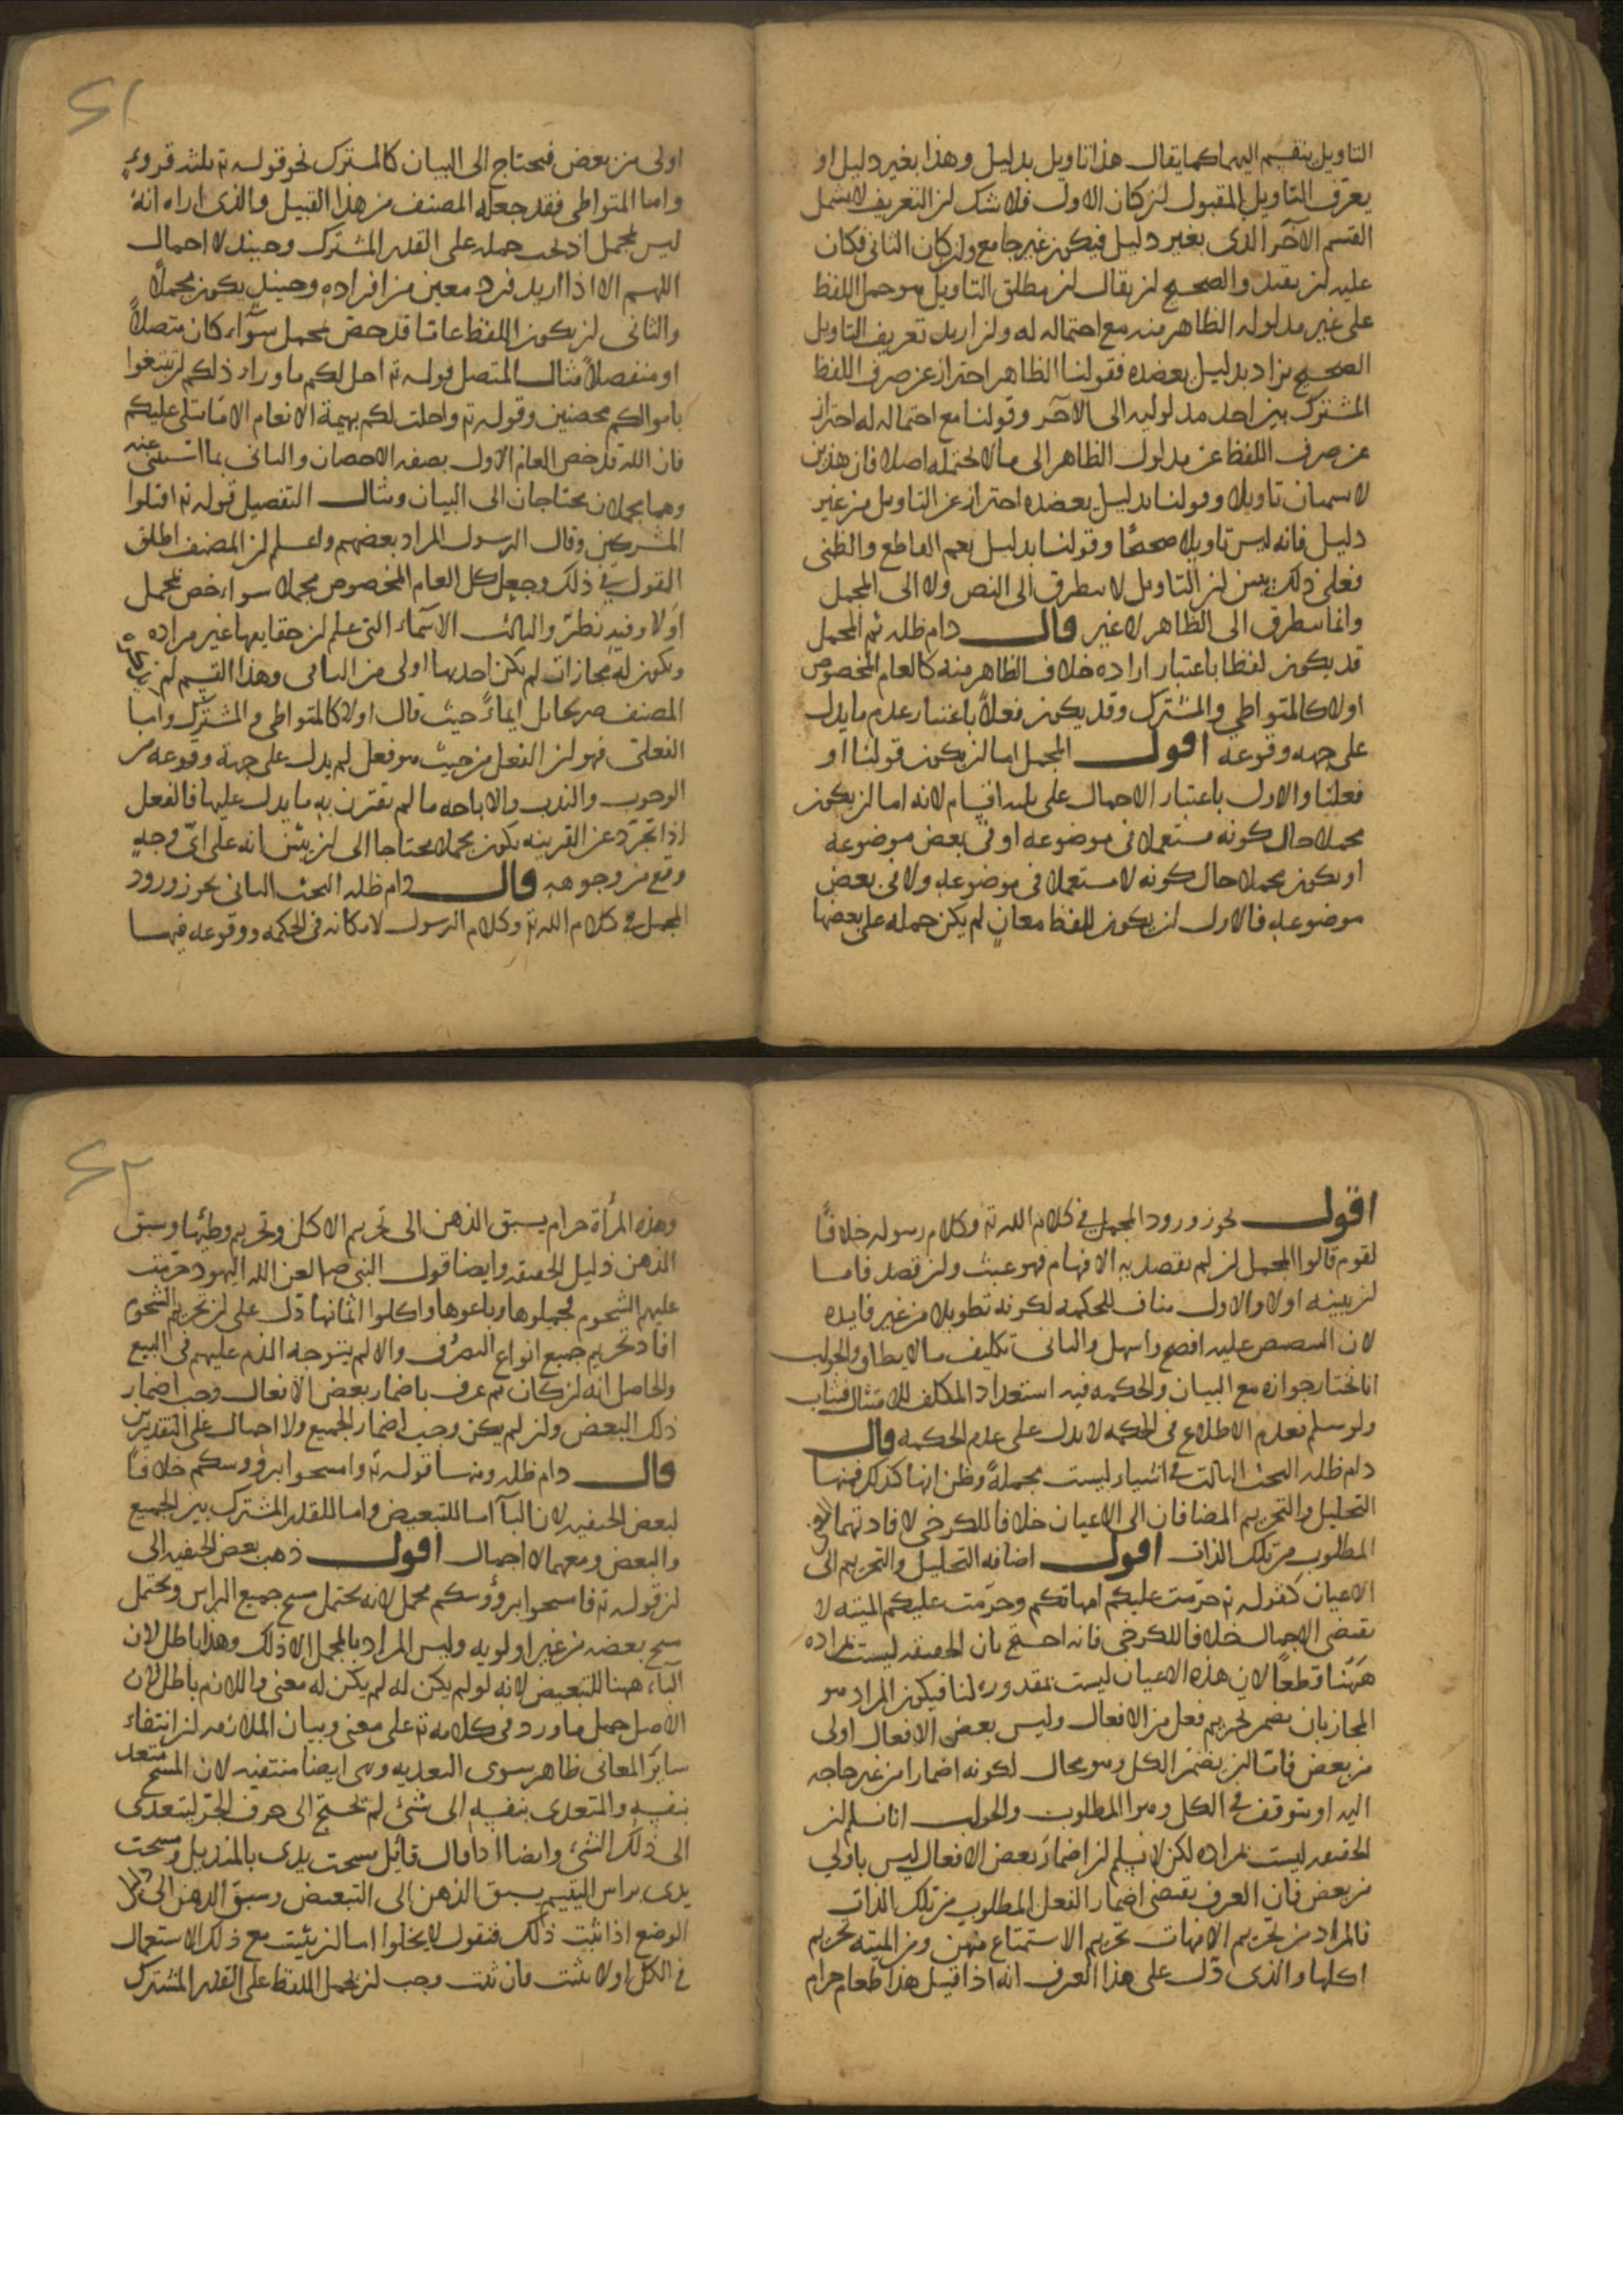 التاويل ينقسم اليهما كما يقال هذا تاويل بدليل وهذا بغير دليل او
يعرف التاويل المقبول لن كان الاول فلا شك لن التعريف لا يشمل
القسم الآخر الذى بغير دليل فيكون غير جامع ولن كان الثانى فكان
عليه لن يقيد والصحيح لن يقال لن مطلق التاويل هو حمل اللفظ
على غير مدلوله الظاهر منه مع احتماله له ولن اريد تعريف التاويل
الصحيح يزاد بدليل يعضده فقولنا الظاهر احتراز عن صرف اللفظ
المشترك بين احد مدلوليه الى الآخر وقولنا مع احتماله له احتراز
عن صرف اللفظ عن مدلول الظاهر الى ما لا يحتمله اصلا فان هذين
لا يسميان تاويلا وقولنا بدليل يعضده احتراز عن التاويل من غير
دليل فانه ليس تاويلا صحيحًا وقولنا بدليل يعم القاطع والظنى
فعلى ذلك يبين لن التاويل لا يتطرق الى النص ولا الى المجمل
وانما يتطرق الى الظاهر لا غير قال دام ظله ثم المجمل
قد يكون لفظا باعتبار اراده خلاف الظاهر منه كالعام المخصوص
اولا كالمتواطى والمشترك وقد يكون فعلاً باعتبار عدم ما يدل
على جهه وقوعه اقول المجمل اما لن يكون قولنا او
فعلنا والاول باعتبار الاجمال على ثلثه اقسام لانه اما لن يكون
مجملا حال كونه مستعملا فى موضوعه او فى بعض موضوعه
او يكون مجملا حال كونه لا مستعملا فى موضوعه ولا فى بعض
موضوعه فالاول لن يكون للفظ معانٍ لم يكن حمله على بعضها
اولى من بعض فيحتاج الى البيان كالمشترك نحو قوله تع ثلثه قروء
واما المتواطى فقد جعله المصنف من هذا القبيل والذى اراه انه
ليس بمجمل اذ يجب حمله على القدر المشترك وحينئذ لا اجمال
اللهم الا اذا اريد فرد معين من افراده وحينئذٍ يكون مجملاً
والثانى لن يكون اللفظ عاما قد خص بمجمل سوآء كان متصلاً
او منفصلاً مثال المتصل قوله تع احل لكم ما وراء ذلكم لن تبتغوا
باموالكم محصنين وقوله تع واحلت لكم بهيمة الانعام الا ما يتلى عليكم
فان الله تع خص العام الاول بصفه الاحصان والثانى بما استثنى عنه
وهما مجملان يحتاجان الى البيان ومثال التفصيل قوله تع اقتلوا
المشركين وقال الرسول المراد بعضهم واعلم لن المصنف اطلق
القول فى ذلك وجعل كل العام المخصوص مجملا سواء خص بمجمل
اولا وفيه نظر والثالث الاسمآء التى علم لن حقايقها غير مراده
وتكون له مجازات لم يكن احدها اولى من الباقى وهذا القسم لم يذكره
المصنف صريحا بل ايماءً حيث قال اولا كالمتواطى والمشترك واما
الفعلى فهو لن الفعل من حيث هو فعل لم يدل على جهة وقوعه من
الوجوب والندب والاباحه ما لم يقترن به ما يدل عليها فالفعل
اذا تجرّد عن القرينه يكون مجملا محتاجا الى لن يبين انه على اىّ وجهٍ
وقع من وجوهه قال دام ظله البحث الثانى يجوز ورود
المجمل فى كلام الله تع وكلام الرسول لامكانه فى الحكمه ووقوعه فيهما
اقول يجوز ورود المجمل فى كلام الله تع وكلام رسوله خلافًا
لقوم قالوا المجمل لن لم يقصد به الافهام فهو عبث ولن قصد فاما
لن يبينه اولا والاول مناف للحكمه لكونه تطويلا من غير فايده
لان التنصيص عليه افصح واسهل والثانى تكليف ما لا يطاق والجواب
انا نختار جوازه مع البيان والحكمه فيه استعداد المكلف للامتثال فيثاب
ولو سلم فعدم الاطلاع فى الحكمه لا يدل على عدم الحكمه قال
دام ظله البحث الثالث فى اشياء ليست مجملةً وظن انها كذلك فمنها
التحليل والتحريم المضافان الى الاعيان خلافا للكرخى لافادتهما
المطلوب من تلك الذات اقول اضافه التحليل والتحريم الى
الاعيان كقوله تع حرّمت عليكم امهاتكم وحرّمت عليكم الميته لا
يقتضى الاجمال خلافا للكرخى فانه احتج بان الحقيقه ليست مراده
ههنا قطعًا لان هذه الاعيان ليست مقدوره لنا فيكون المراد هو
المجاز بان يضمر تحريم فعل من الافعال وليس بعض الافعال اولى
من بعض فاما لن يضمر الكل وهو محال لكونه اضمارا من غير حاجه
اليه او يتوقف فى الكل وهو المطلوب والجواب انا نسلم لن
الحقيقه ليست مراده لكن لا نسلم لن اضمار بعض الافعال ليس باولى
من بعض فان العرف يقتضى اضمار الفعل المطلوب من تلك الذات
فالمراد من تحريم الامهات تحريم الاستمتاع منهن ومن الميته تحريم
اكلها والذى دّل على هذا العرف انه اذا قيل هذا طعام حرام
وهذه المرأة حرام يسبق الذهن الى تحريم الاكل وتحريم وطيها وسبق
الذهن دليل الحقيقه وايضا قول النبى صم لعن الله اليهود حرّمت
عليهم الشحوم فجملوها وباعوها واكلوا اثمانها دّل على لن تحريم الشحوم
افاد تحريم جميع انواع التصرف والا لم يتوجه الذم عليهم فى البيع
والحاصل انه لن كان ثم عرف باضمار بعض الافعال وجب اضمار
ذلك البعض ولن لم يكن وجب اضمار الجميع ولا اجمال على التقديرين
قال دام ظله ومنها قوله تع وامسحوا برؤوسكم خلافًا
لبعض الحنفيه لان البآ اما للتبعيض واما للقدر المشترك بين الجميع
والبعض ومعهما لا اجمال اقول ذهب بعض الحنفيه الى
لن قوله تع فامسحوا برؤوسكم مجمل لانه يحتمل مسح جميع الراس ويحتمل
مسح بعضه من غير اولويه وليس المراد بالمجمل الا ذلك وهذا باطل لان
البآء ههنا للتبعيض لانه لو لم يكن له لم يكن له معنى واللازم باطل لان
الاصل حمل ما ورد فى كلامه تع على معنى وبيان الملازمه لن انتفاء
سائر المعانى ظاهر سوى التعديه وهى ايضا منتفيه لان المسح متعد
بنفسه والمتعدى بنفسه الى شئ لم يحتج الى حرف الجر ليتعدى
الى ذلك الشئ وايضا اذا قال قائل مسحت يدى بالمنديل ومسحت
يدى براس اليتيم يسبق الذهن الى التبعيض وسبق الذهن الى
الوضع اذا ثبت ذلك فنقول لا يخلوا اما لن يثبت مع ذلك الاستعمال
فى الكل اولا يثبت فان ثبت وجب لن يحمل اللفظ على القدر المشترك